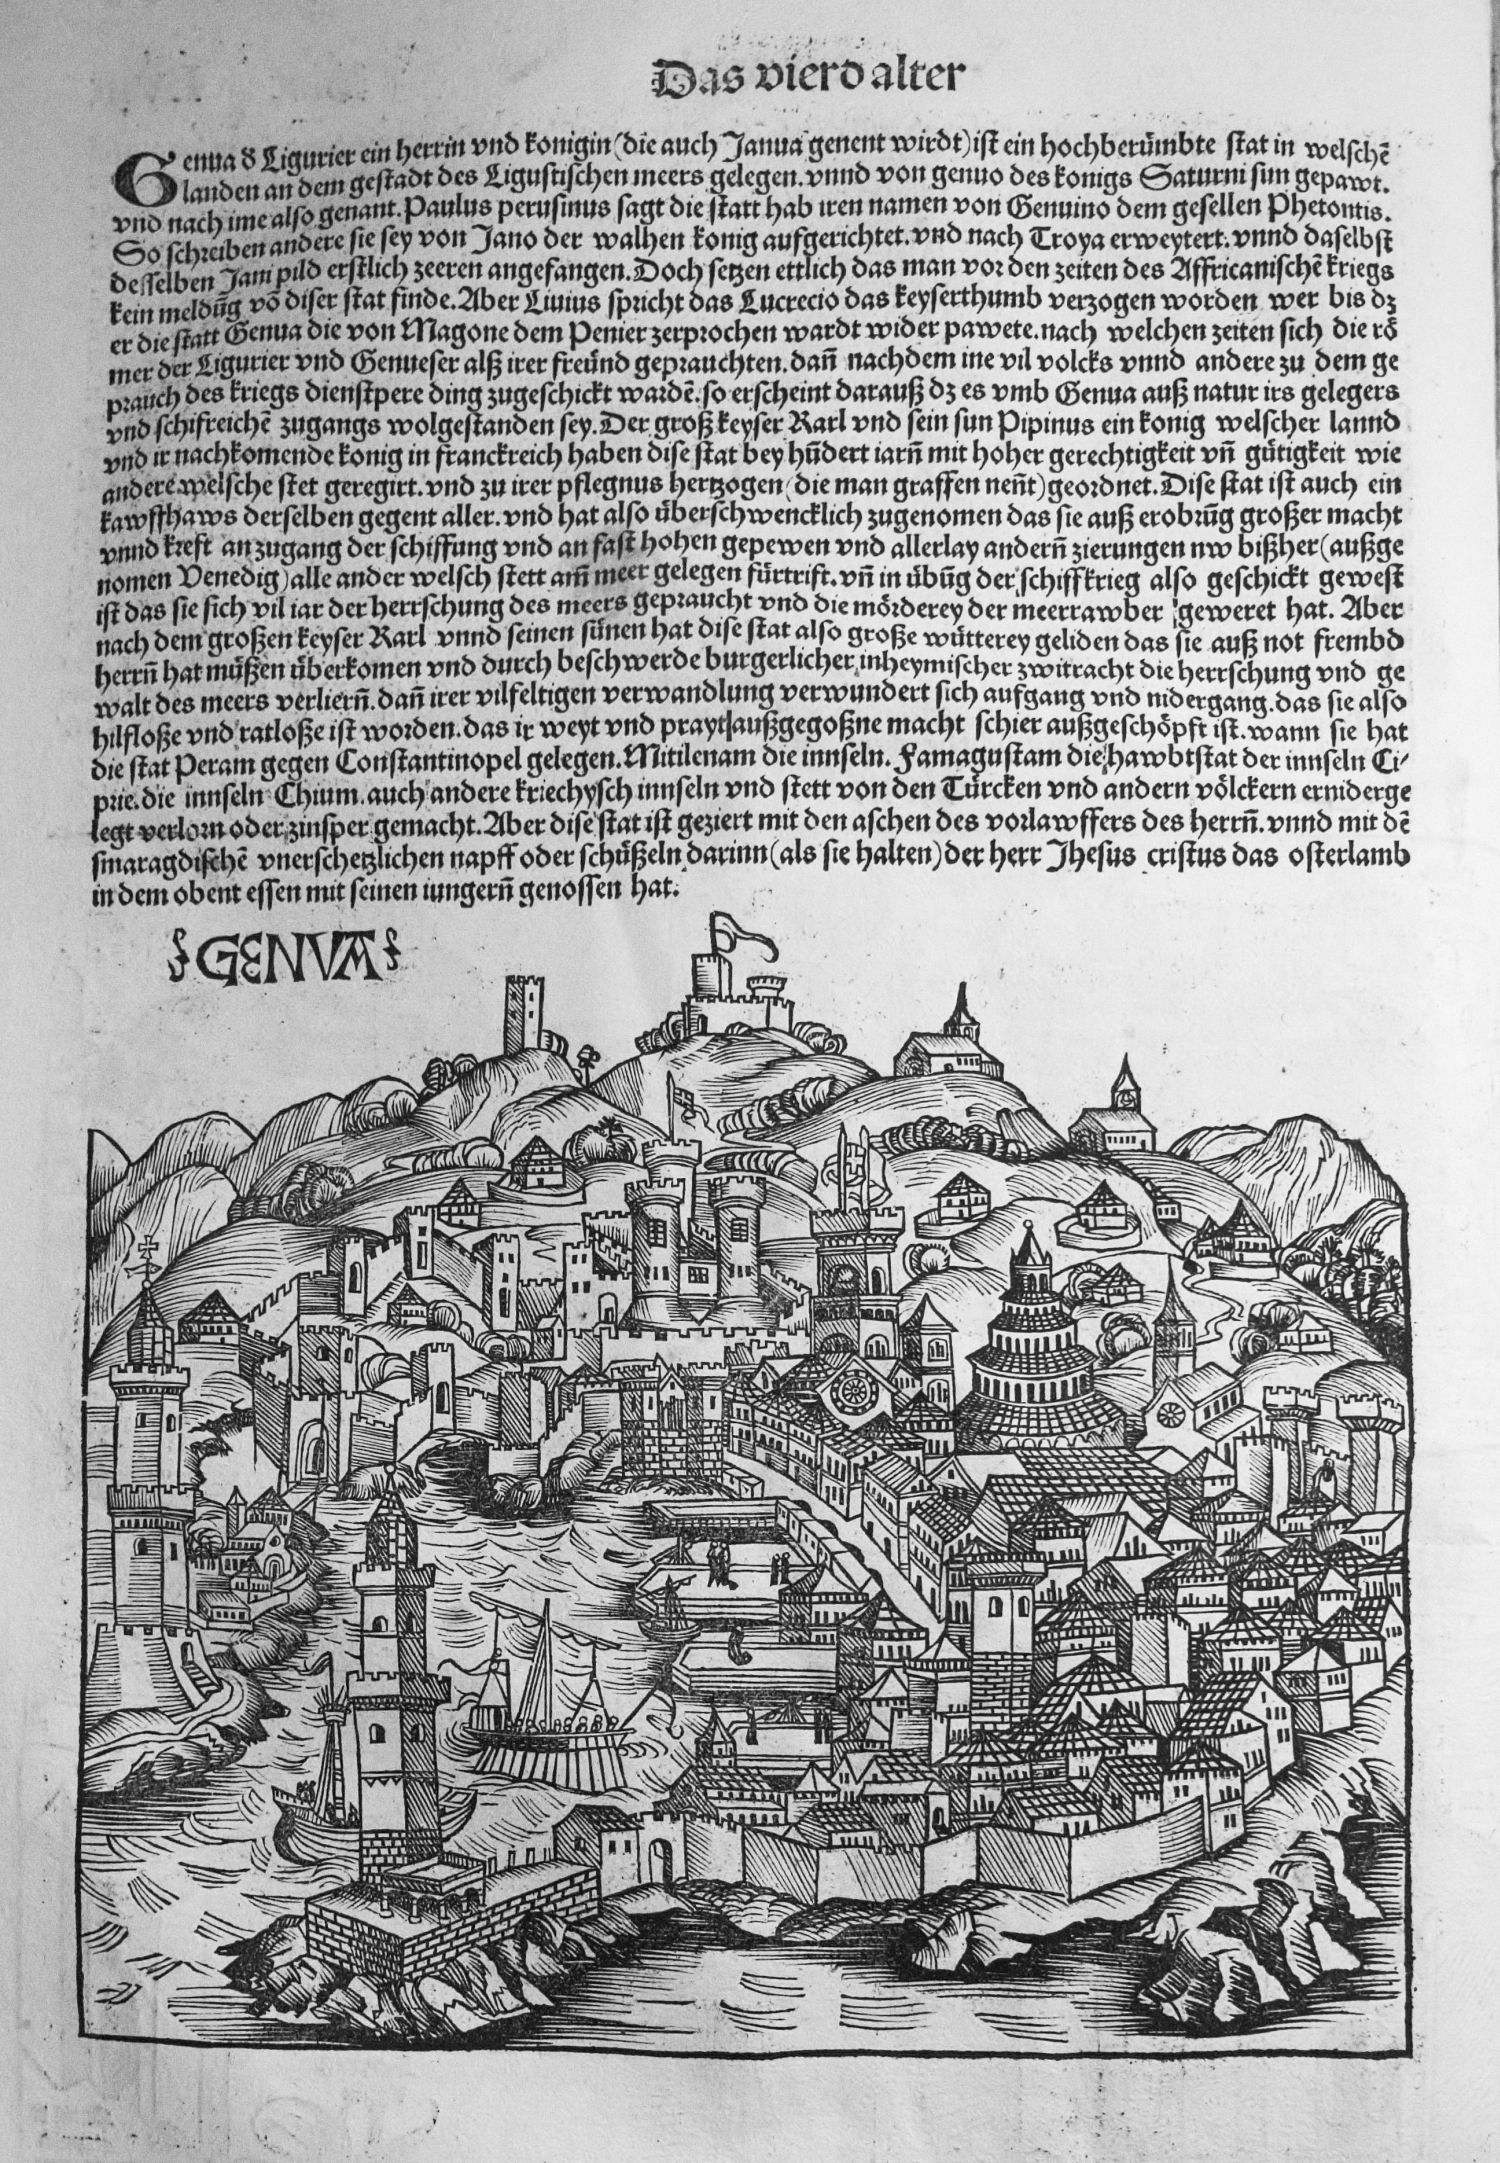 Das vierd alter
Genua d̕ Ligurier ein herrin vnd konigin (die auch Janua genent wirdt) ist ein hochberümbte stat in welschẽ
landen an dem gestadt des Ligustischen meers gelegen. vnnd von genuo des konigs Saturni sun gepawt.
vnd nach ime also genant. Paulus perusinus sagt die statt hab iren namen von Genuino dem gesellen Phetontis.
So schreiben andere sie sey von Jano der walhen konig aufgerichtet. vnd nach Troya erweytert. vnnd daselbst
desselben Jani pild erstlich zeeren angefangen. Doch setzen ettlich das man vor den zeiten des Affricanischẽ kriegs
kein meldũg võ diser stat finde. Aber Liuius spricht das Lucrecio das keyserthumb verzogen worden wer bis dz
er die statt Genua die von Magone dem Penier zerprochen wardt wider pawete. nach welchen zeiten sich die rö
mer der Ligurier vnd Genueser alß irer freünd geprauchten. dañ nachdem ine vil volcks vnnd andere zu dem ge
prauch des kriegs dienstpere ding zugeschickt wardẽ. so erscheint darauß dz es vmb Genua auß natur irs gelegers
vnd schifreichẽ zugangs wolgestanden sey. Der groß keyser Karl vnd sein sun Pipinus ein konig welscher lannd
vnd ir nachkomende konig in franckreich haben dise stat bey hũdert iarñ mit hoher gerechtigkeit vñ gütigkeit wie
andere welsche stet geregirt. vnd zu irer pflegnus hertzogen (die man graffen neñt) geordnet. Dise stat ist auch ein
kawffhaws derselben gegent aller. vnd hat also überschwencklich zugenomen das sie auß erobrũg großer macht
vnnd kreft an zugang der schiffung vnd an fast hohen gepewen vnd allerlay anderñ zierungen nw bißher (außge
nomen Venedig) alle ander welsch stett am̃ meer gelegen fürtrift. vñ in übũg der schiffkrieg also geschickt gewest
ist das sie sich vil iar der herrschung des meers gepraucht vnd die mörderey der meerrawber geweret hat. Aber
nach dem großen keyser Karl vnnd seinen sünen hat dise stat also große wütterey geliden das sie auß not frembd
herrñ hat müßen überkomen vnd durch beschwerde burgerlicher inheymischer zwitracht die herrschung vnd ge
walt des meers verlierñ. dañ irer vilfeltigen verwandlung verwundert sich aufgang vnd nidergang. das sie also
hilfloße vnd ratloße ist worden. das ir weyt vnd prayt außgegoßne macht schier außgeschöpft ist. wann sie hat
die stat Peram gegen Constantinopel gelegen. Mitilenam die innseln. Famagustam die hawbtstat der innseln Ci-
prie. die innseln Chium. auch andere kriechysch innseln vnd stett von den Türcken vnd andern völckern erniderge
legt verlorn oder zinsper gemacht. Aber dise stat ist geziert mit den aschen des vorlawffers des herrñ. vnnd mit dẽ
smaragdischẽ vnerschetzlichen napff oder schüßeln darinn (als sie halten) der herr Jhesus cristus das osterlamb
in dem obent essen mit seinen iungerñ genossen hat.
GENVA